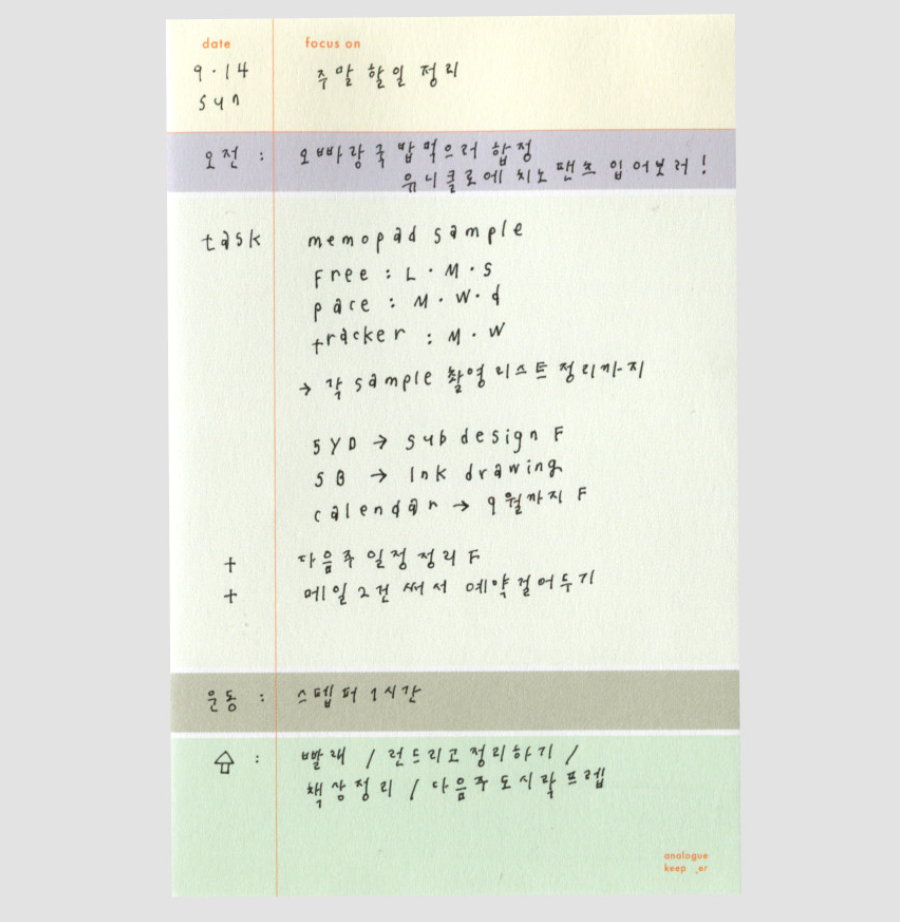 date focus on
9.14 주말 할일 정리
sun
오전 : 오빠랑 국밥먹으러 합정
유니클로에 치노팬츠 입어보러!
task memopad sample
Free : L·M·S
pace : M·W·d
tracker : M·W
→ 각 sample 촬영 리스트 정리까지
SYD → sub design F
SB → Ink drawing
calendar → 9월까지 F
+ 다음주 일정 정리 F
+ 메일 2건 써서 예약걸어두기
운동 : 스텝퍼 1시간
: 빨래 / 런드리고정리하기 /
책상정리 / 다음주도시락프렙
analogue
keep_er